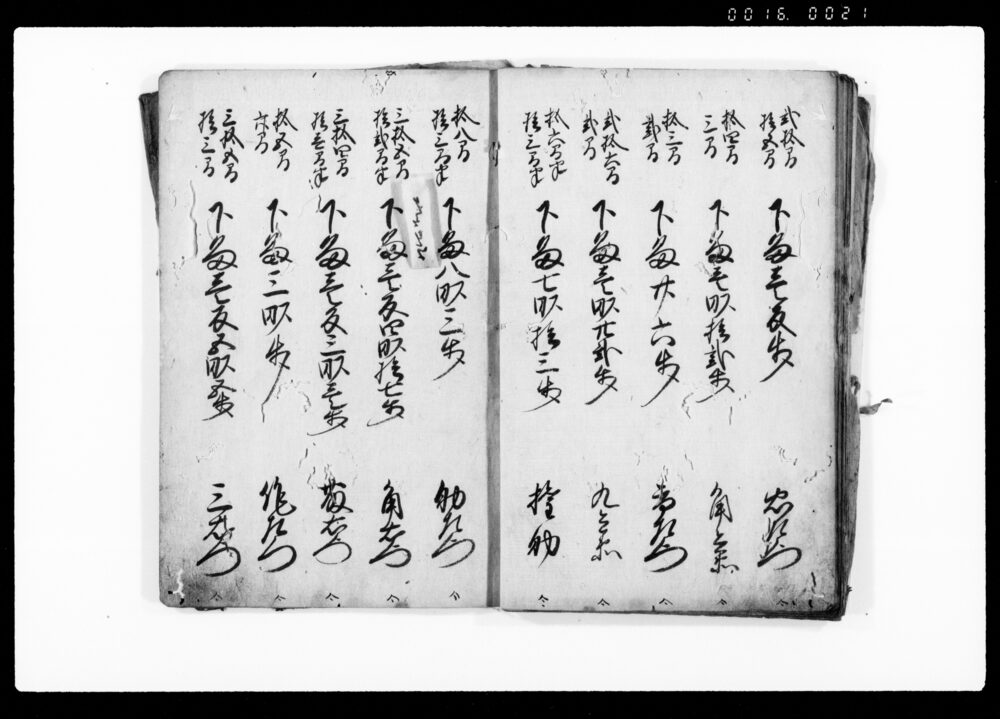 0016. 0021
弐拾間
拾五間
下畠壱反歩 忠左衛門
拾四間
三間
下畠壱畝拾弐歩 角兵衛
拾三間
弐間
下畠廿六歩
弐拾六間
弐間
下畠壱畝廿弐歩 九兵衛
拾六間半
拾三間半
下畠七畝拾三歩 権助
拾八間
拾三間半
下畠八畝三歩 助左衛門
三拾五間
拾弐間半
下畠壱反四畝拾七歩 角右衛門
三拾四間
拾壱間半
下畠壱反三畝壱歩
拾五間
六間
下畠三畝歩 作左衛門
三拾五間
拾三間
下畠壱反五畝五歩 三右衛門